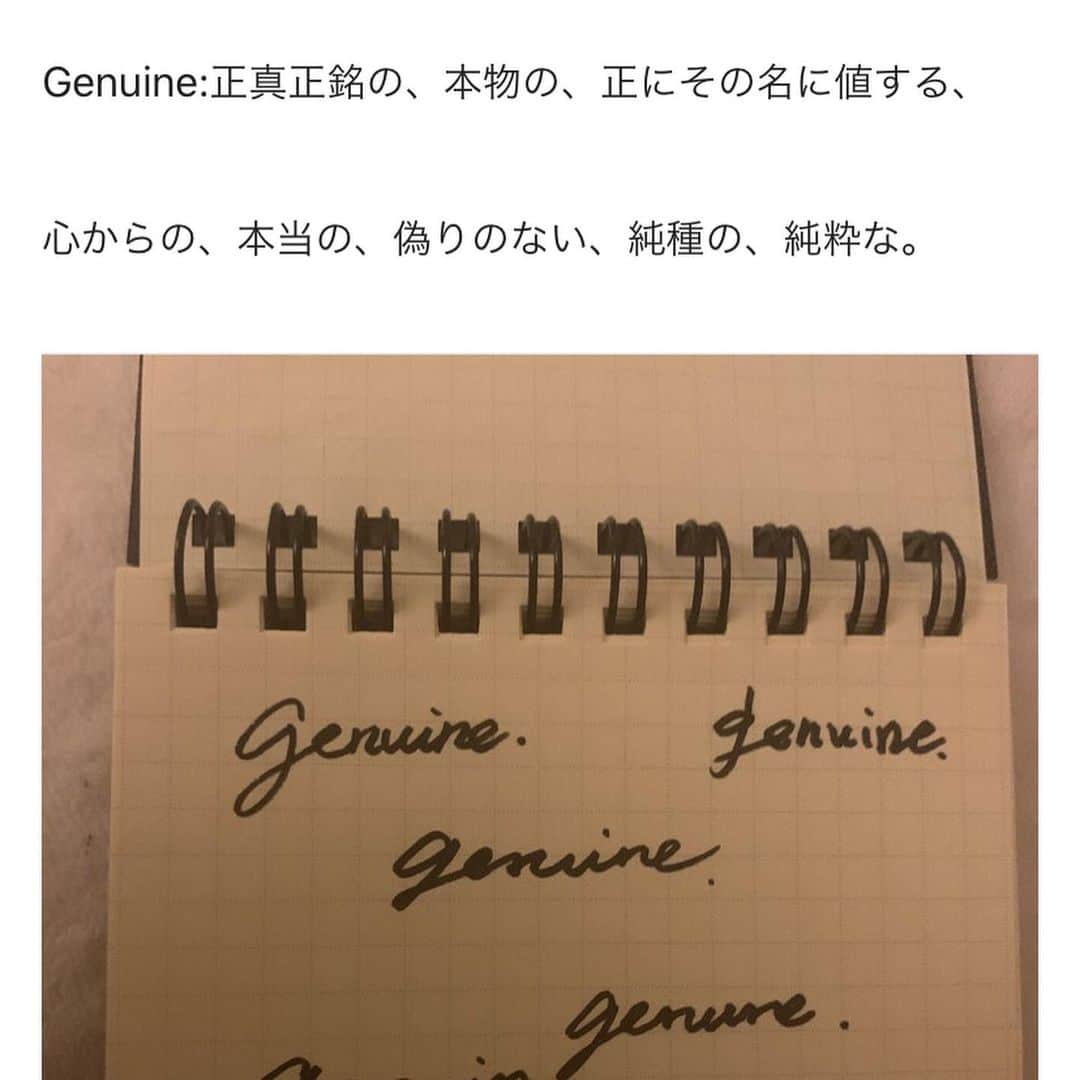 Genuine:正真正銘の、本物の、正にその名に値する、
心からの、本当の、偽りのない、純種の、純粋な。
Genuine. genuine.
genuine.
genuine.